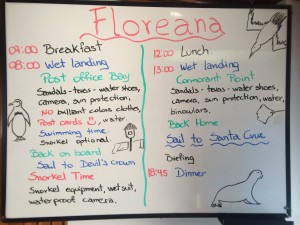 Floreana
07:00 Breakfast
08:00 Wet landing
Post office Bay
Sandals - tevas - water shoes,
camera, sun protection,
NO brilliant colors clothes
Post cards, water
Swimming time
Snorkel optional.
Back on board
Sail to Devil's crown
Snorkel Time
Snorkel equipment, wetsuit,
waterproof camera.
12:00 Lunch
13:00 Wet landing
Cormorant Point
Sandals - tevas - water shoes,
camera, sun protection, water,
binoculars.
Back Home
Sail to Santa Cruz
Briefing
18:45 Dinner